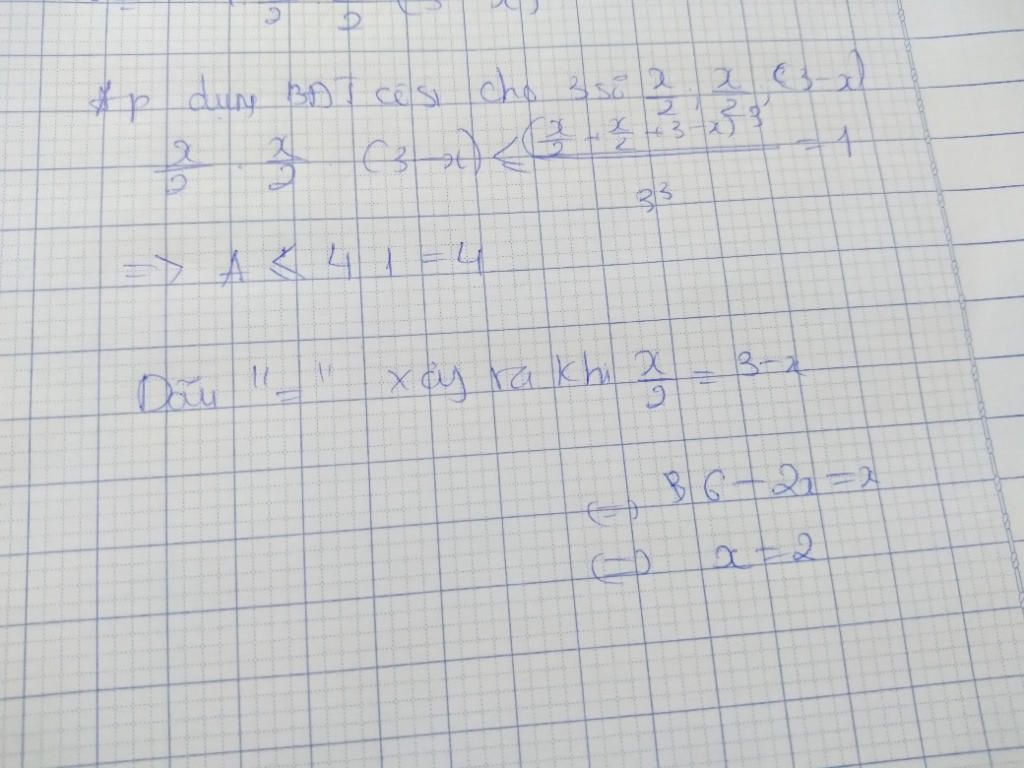 Áp dụng BĐT côsi cho 3 số x/2, x/2, (3-x)
x/2 . x/2 . (3-x) ≤ (x/2 + x/2 + 3 - x)^3 / 3^3 = 1
=> A ≤ 4.1 = 4
Dấu "=" xảy ra khi x/2 = 3-x
(=) 6 - 2x = x
(=) x = 2